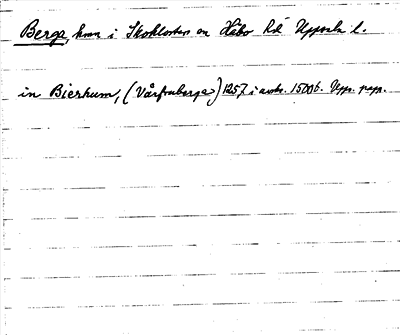 Berga, hmn i Skokloster sn Håbo hd Uppsala l.
in Bierhum, (Vårfruberga) 1257 i avskr. 1500 b. Upps. papp.